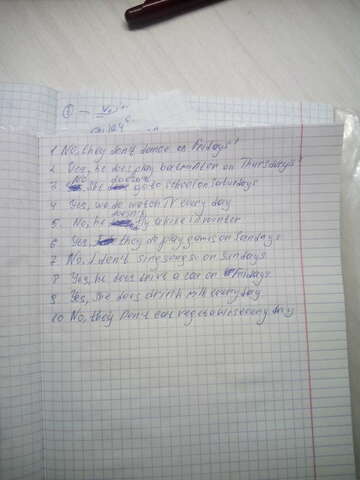 ① —
1 No, they don't dance on Fridays!
2 Yes, he does play badminton on Thursdays
3 No she doesn't go to school on Saturdays
4 Yes, we do watch TV every day
5. No, he doesn't fly a kite in winter
6 Yes, they do play games on Sundays
7 No, I don't sing songs on Sundays
8 Yes, he does drive a car on Fridays
9 Yes, she does drink milk every day
10 No, they Don't eat vegetables every day